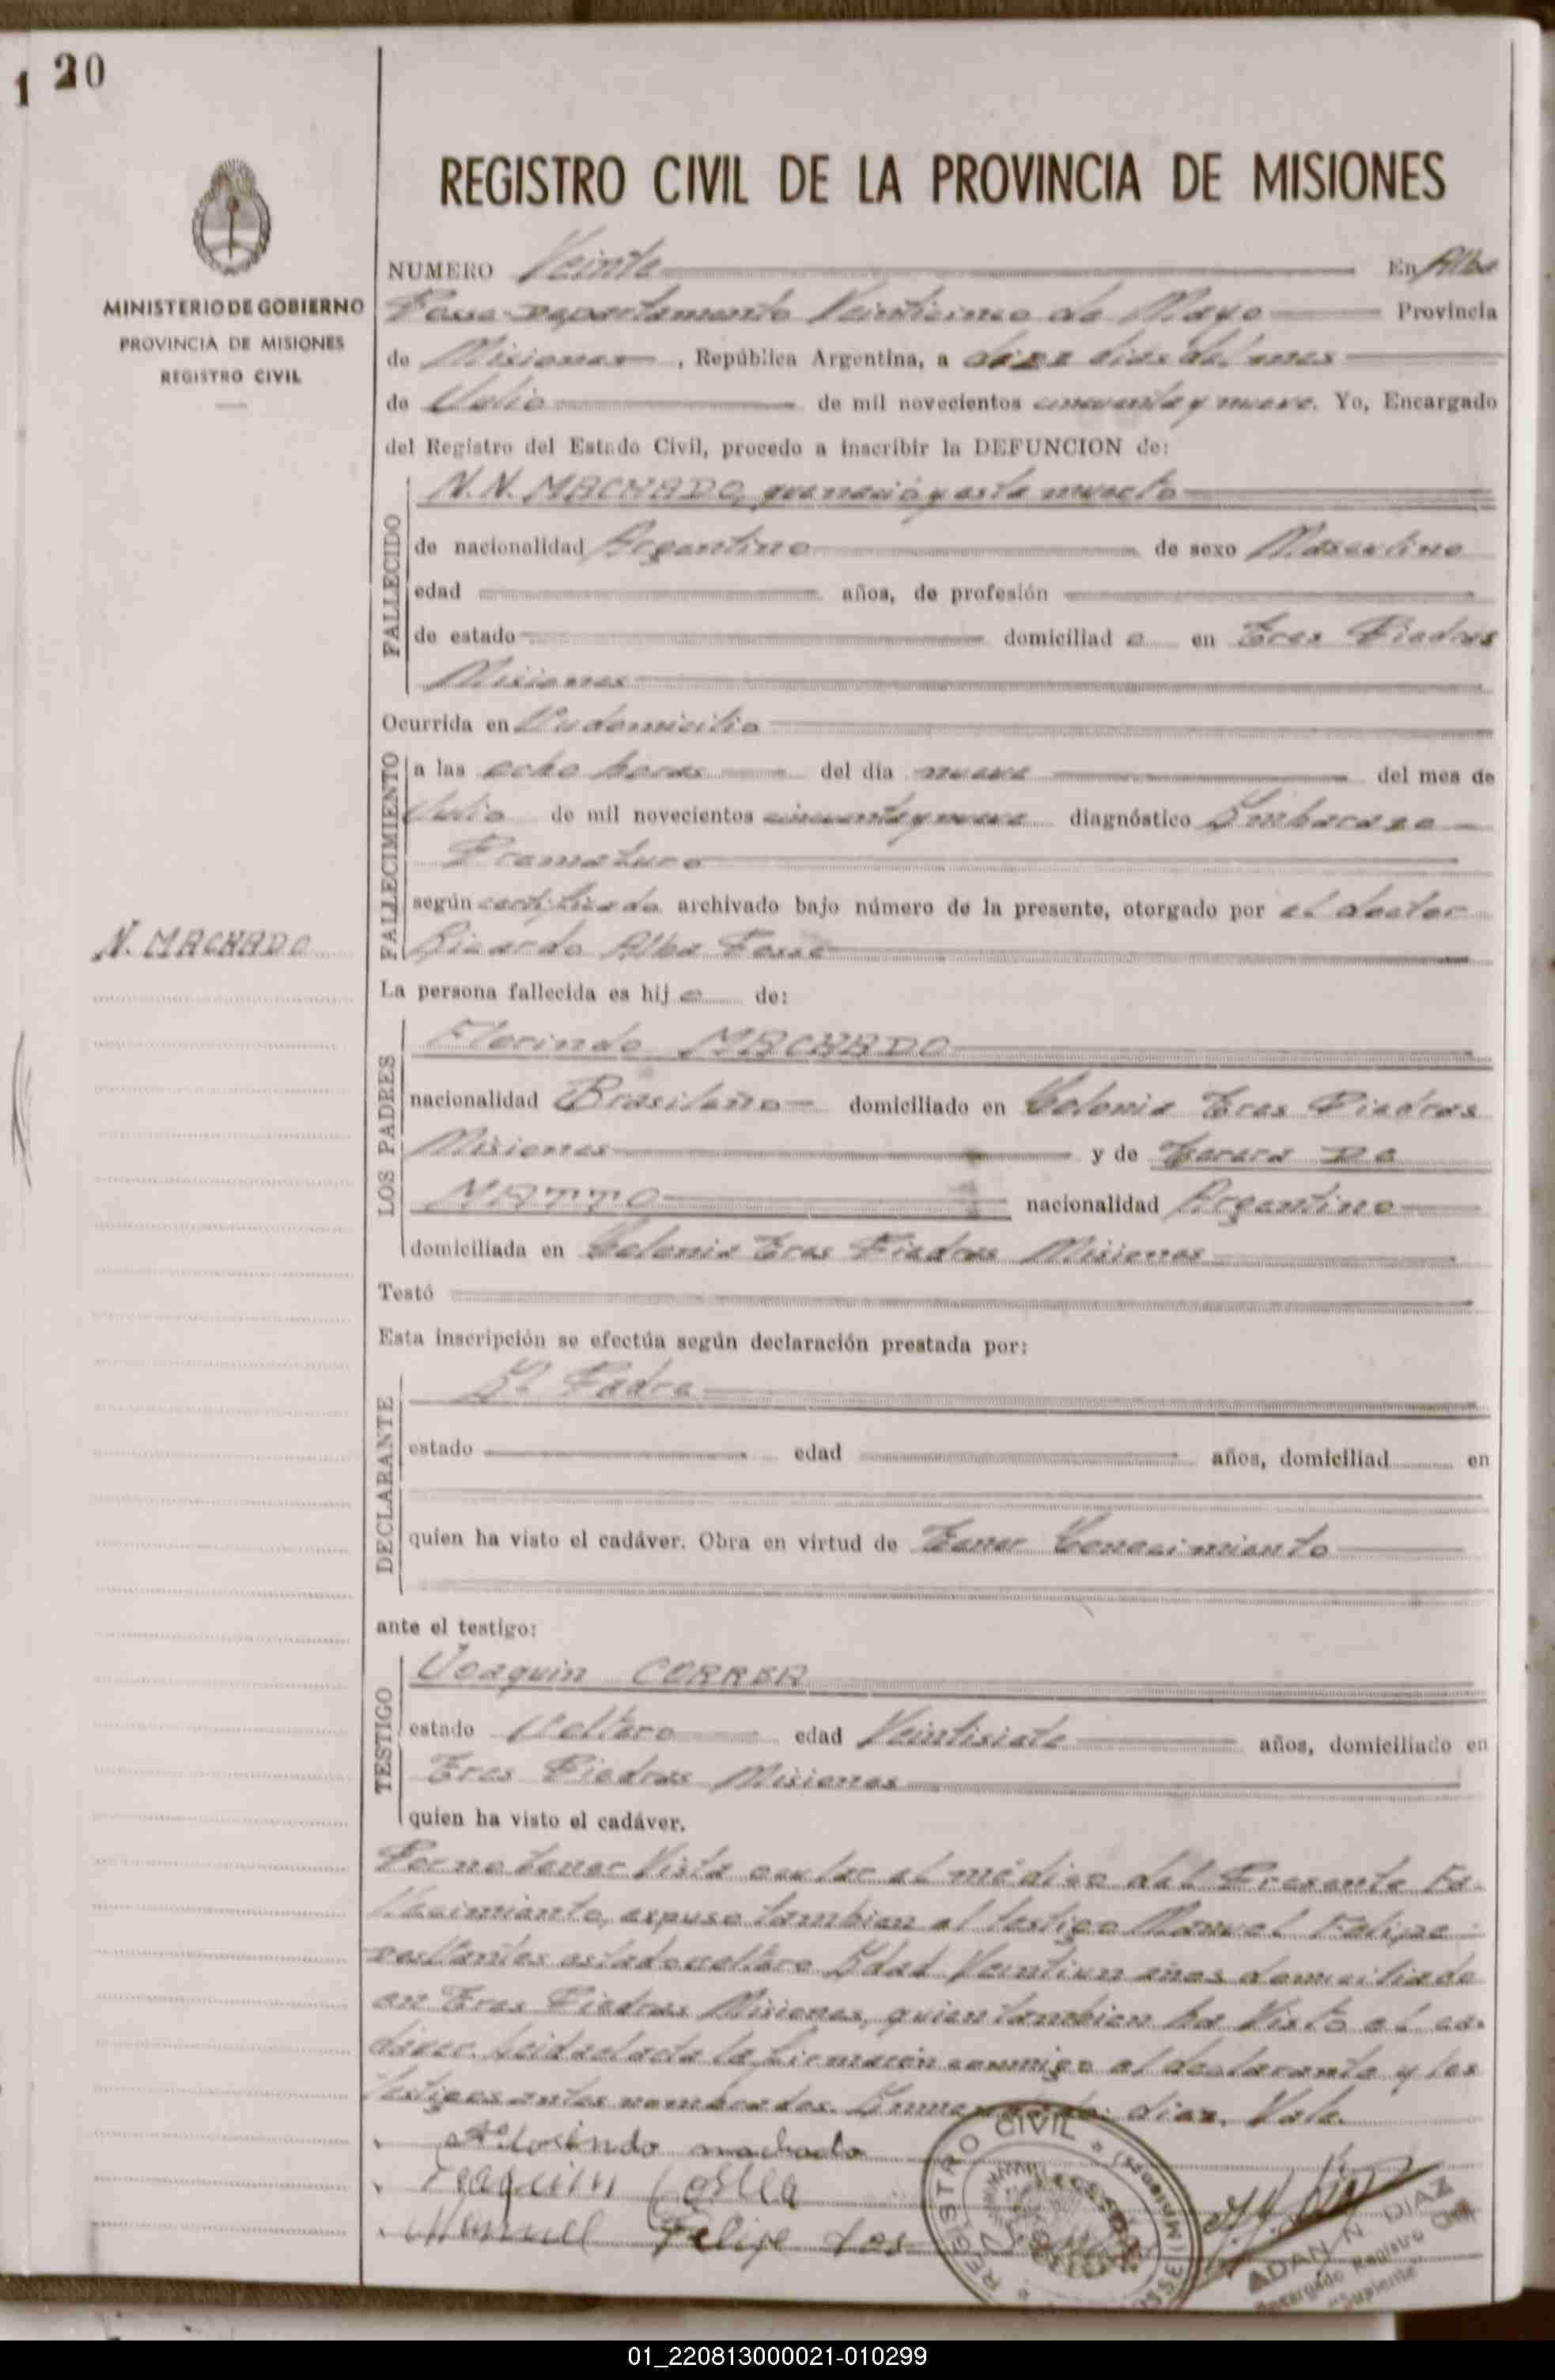 1 20
REGISTRO CIVIL DE LA PROVINCIA DE MISIONES
MINISTERIO DE GOBIERNO
PROVINCIA DE MISIONES
REGISTRO CIVIL
NUMERO Veinte En Alba
Posse Departamento Veinticinco de Mayo Provincia
de Misiones, República Argentina, a diez dias del mes
de Julio de mil novecientos cincuenta y nueve. Yo, Encargado
del Registro del Estado Civil, procedo a inscribir la DEFUNCION de:
FALLECIDO
N.N. MACHADO, que nació y esta muerto
de nacionalidad Argentino de sexo Masculino
edad años, de profesión
de estado domiciliad o en Tres Piedras
Misiones
Ocurrida en Su domicilio
FALLECIMIENTO
a las ocho horas del día nueve del mes de
Julio de mil novecientos cincuenta y nueve diagnóstico Embarazo
Prematuro
según certificado archivado bajo número de la presente, otorgado por el doctor
Ricardo Alba Posse
N. MACHADO
La persona fallecida es hij o de:
LOS PADRES
Florindo MACHADO
nacionalidad Brasileño domiciliado en Colonia Tres Piedras
Misiones y de DA
MATTO nacionalidad Argentino
domiciliada en Colonia Tres Piedras Misiones
Testó
Esta inscripción se efectúa según declaración prestada por:
DECLARANTE
El Padre
estado edad años, domiciliad en
quien ha visto el cadáver. Obra en virtud de Tener Conocimiento
ante el testigo:
TESTIGO
Joaquin CORREA
estado Soltero edad Veintisiete años, domiciliado en
Tres Piedras Misiones
quien ha visto el cadáver.
Por no tener Vista ocular el médico del Presente Fa-
llecimiento, expuso tambien el testigo Manuel Felipe
estado soltero Edad Veintiun años domiciliado
en Tres Piedras Misiones, quien tambien ha Visto el ca-
dáver. Leida el acta la firmaron conmigo el declarante y los
testigos antes nombrados. Enmendado: diez. Vale.
Florindo machado
Joaquin Correa
Manuel Felipe dos
REGISTRO CIVIL
(Misiones)
ADAN N. DIAZ
Encargado Registro Civil
"Suplente"
01_220813000021-010299